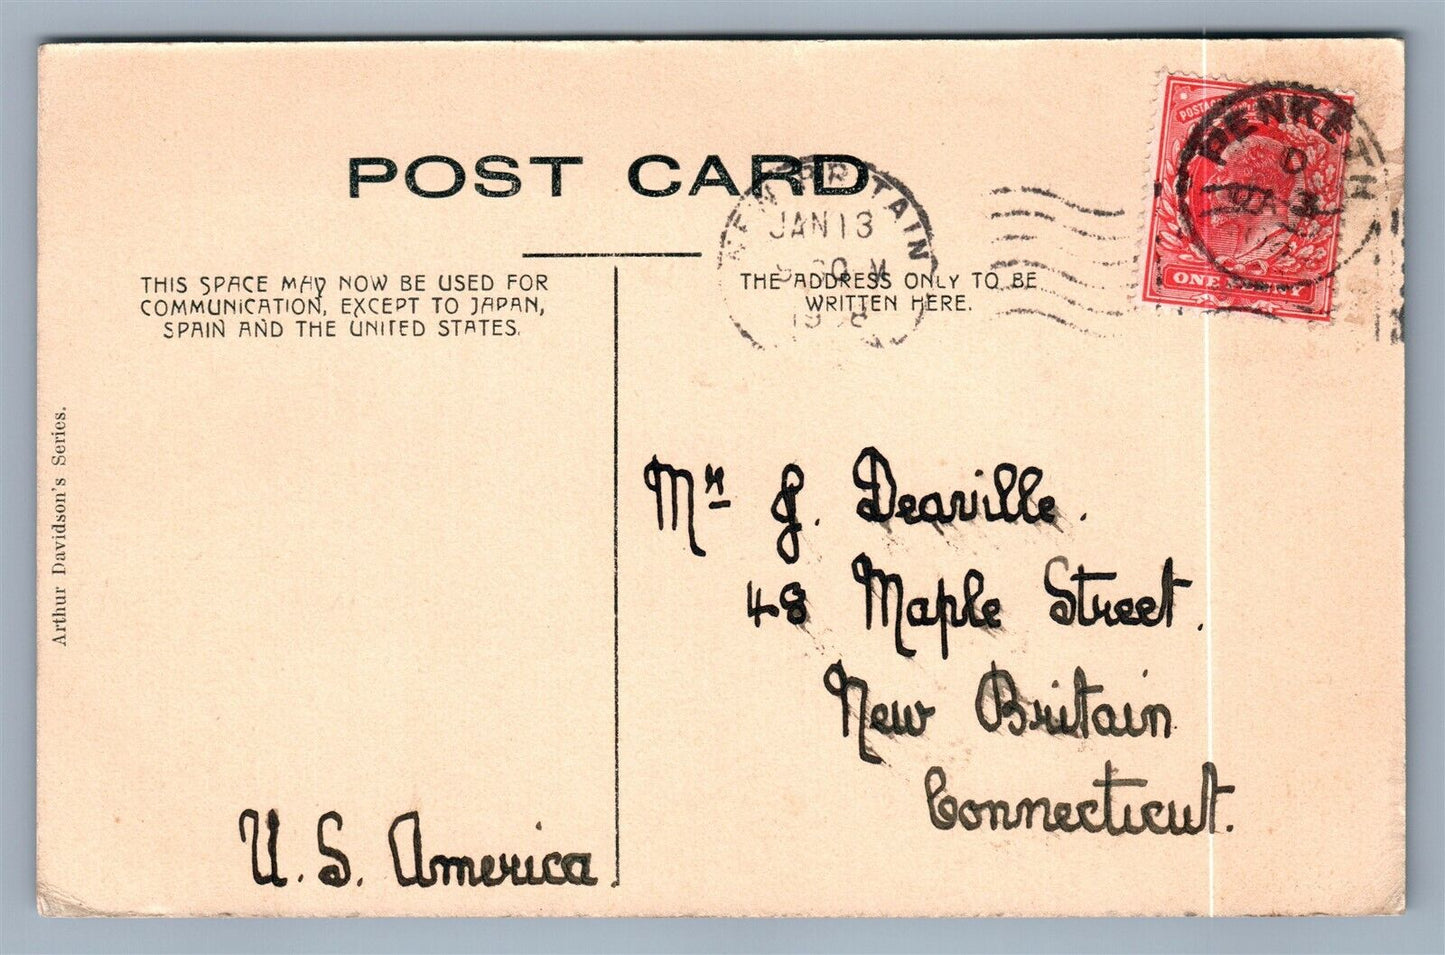 POST CARD
THIS SPACE MAY NOW BE USED FOR
COMMUNICATION, EXCEPT TO JAPAN,
SPAIN AND THE UNITED STATES.
THE ADDRESS ONLY TO BE
WRITTEN HERE.
NEW BRITAIN
JAN 13
PENKETH
ONE PENNY
Arthur Davidson's Series.
Mr J. Deaville.
48 Maple Street.
New Britain
Connecticut.
U. S. America.